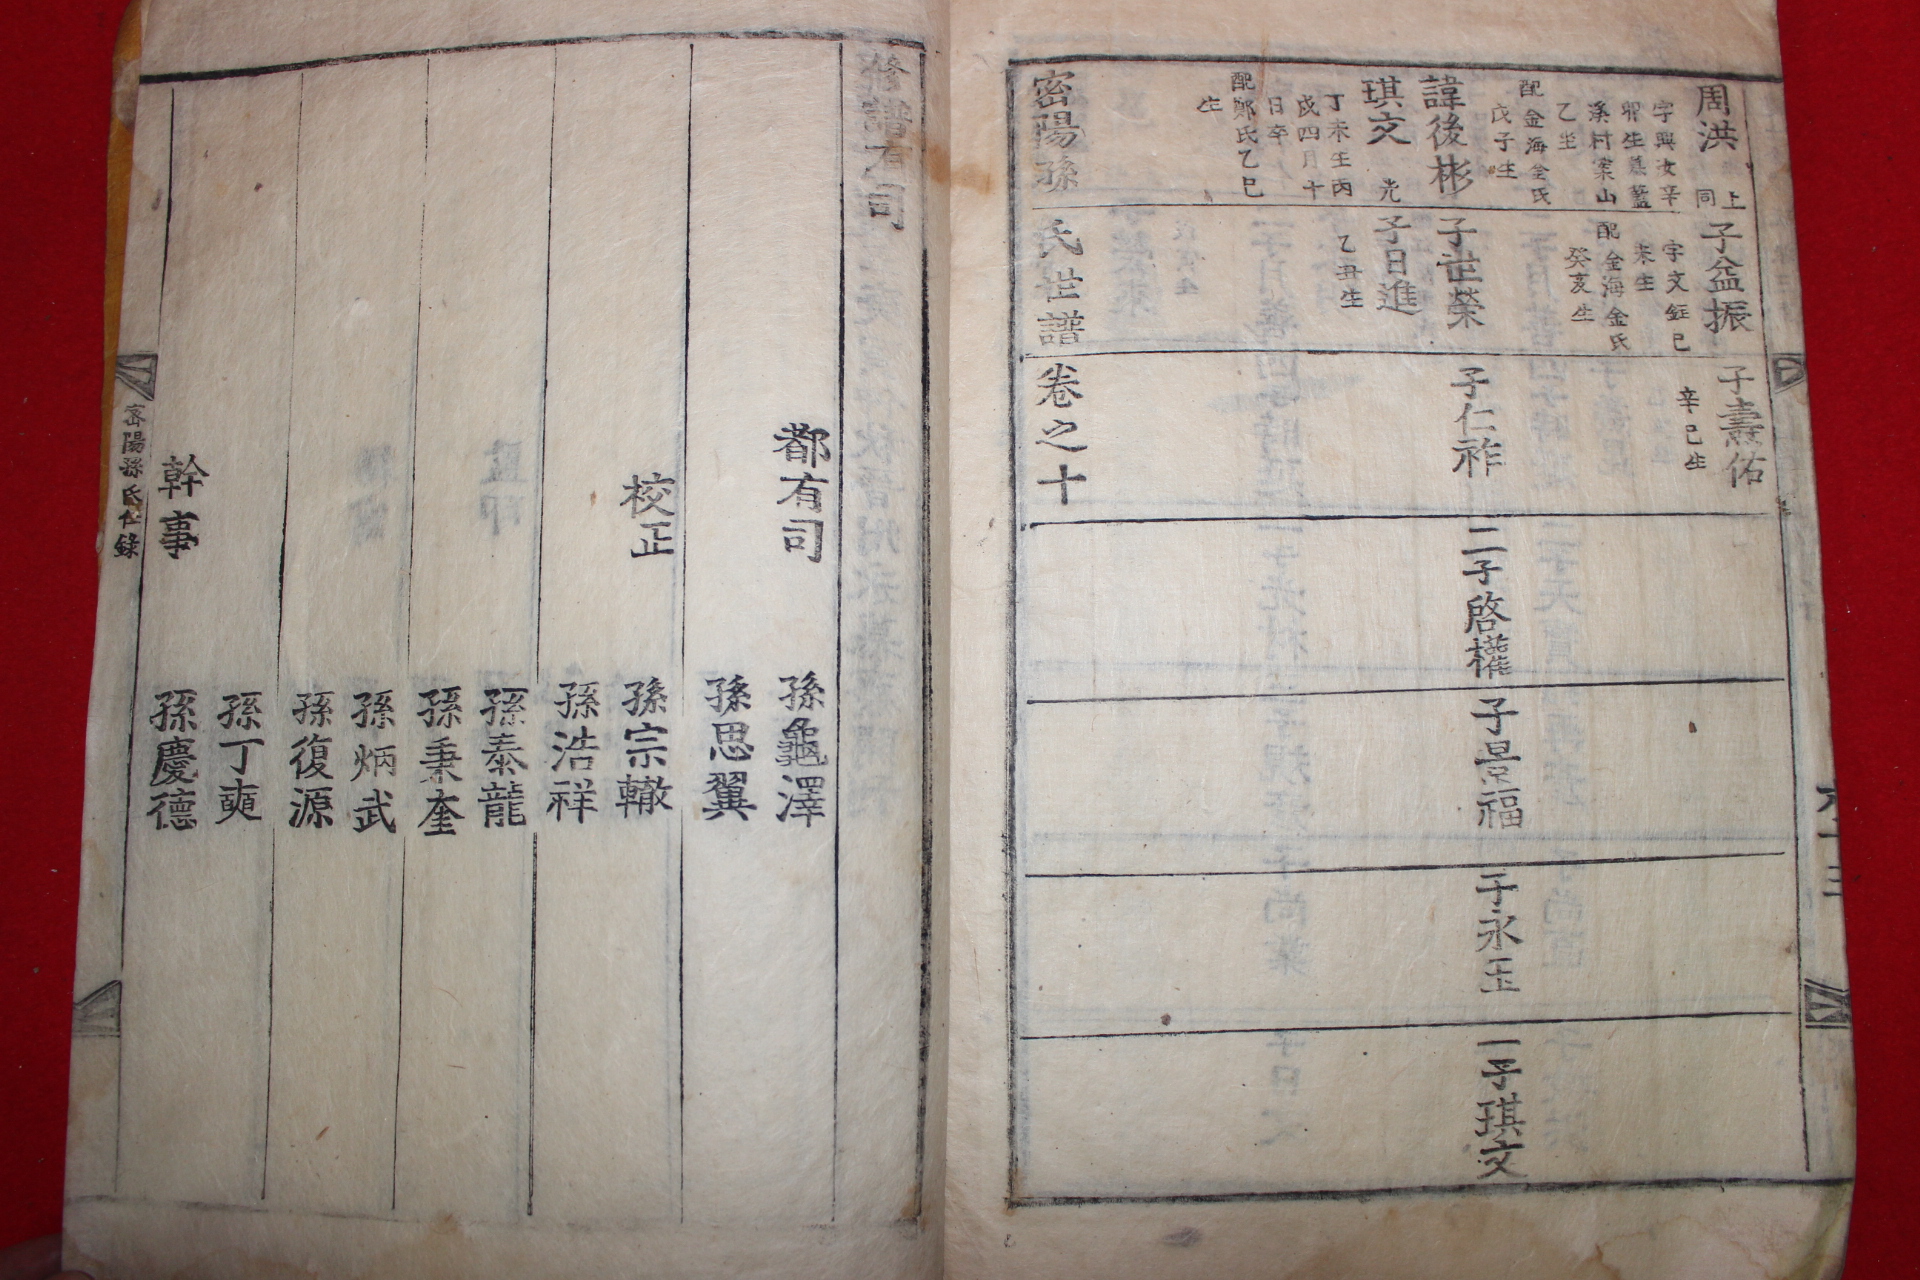 周洪
上同
字興汝辛
卯生墓
溪村案山
乙坐
配金海金氏
戊子生
諱後彬
琪文
光
丁未生丙
戌四月十
日卒
配鄭氏乙巳
生
子益振
字文鉦己
未生
配金海金氏
癸亥生
子世榮
子日進
乙丑生
子壽佑
辛巳生
子仁祚
二子啓權
子景福
子永玉
一子琪文
密陽孫氏世譜卷之十
修譜有司
都有司
孫龜澤
孫思翼
校正
孫宗轍
孫浩祥
孫泰龍
孫秉奎
孫炳武
孫復源
孫丁奭
幹事
孫慶德
密陽孫氏世錄